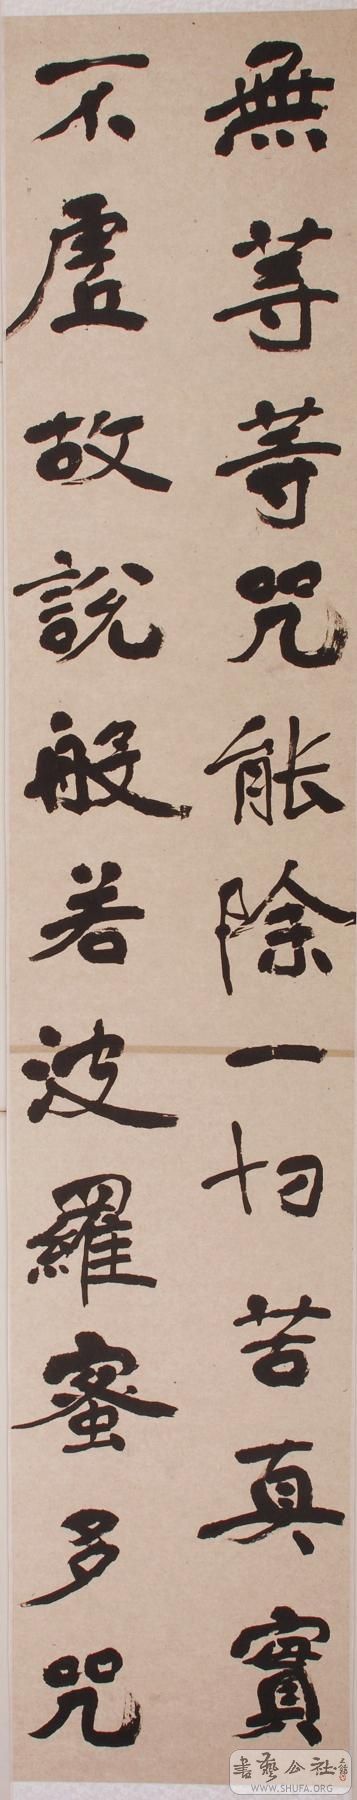 無等等咒能除一切苦真實
不虛故說般若波羅蜜多咒
書藝公社
WWW.SHUFA.ORG